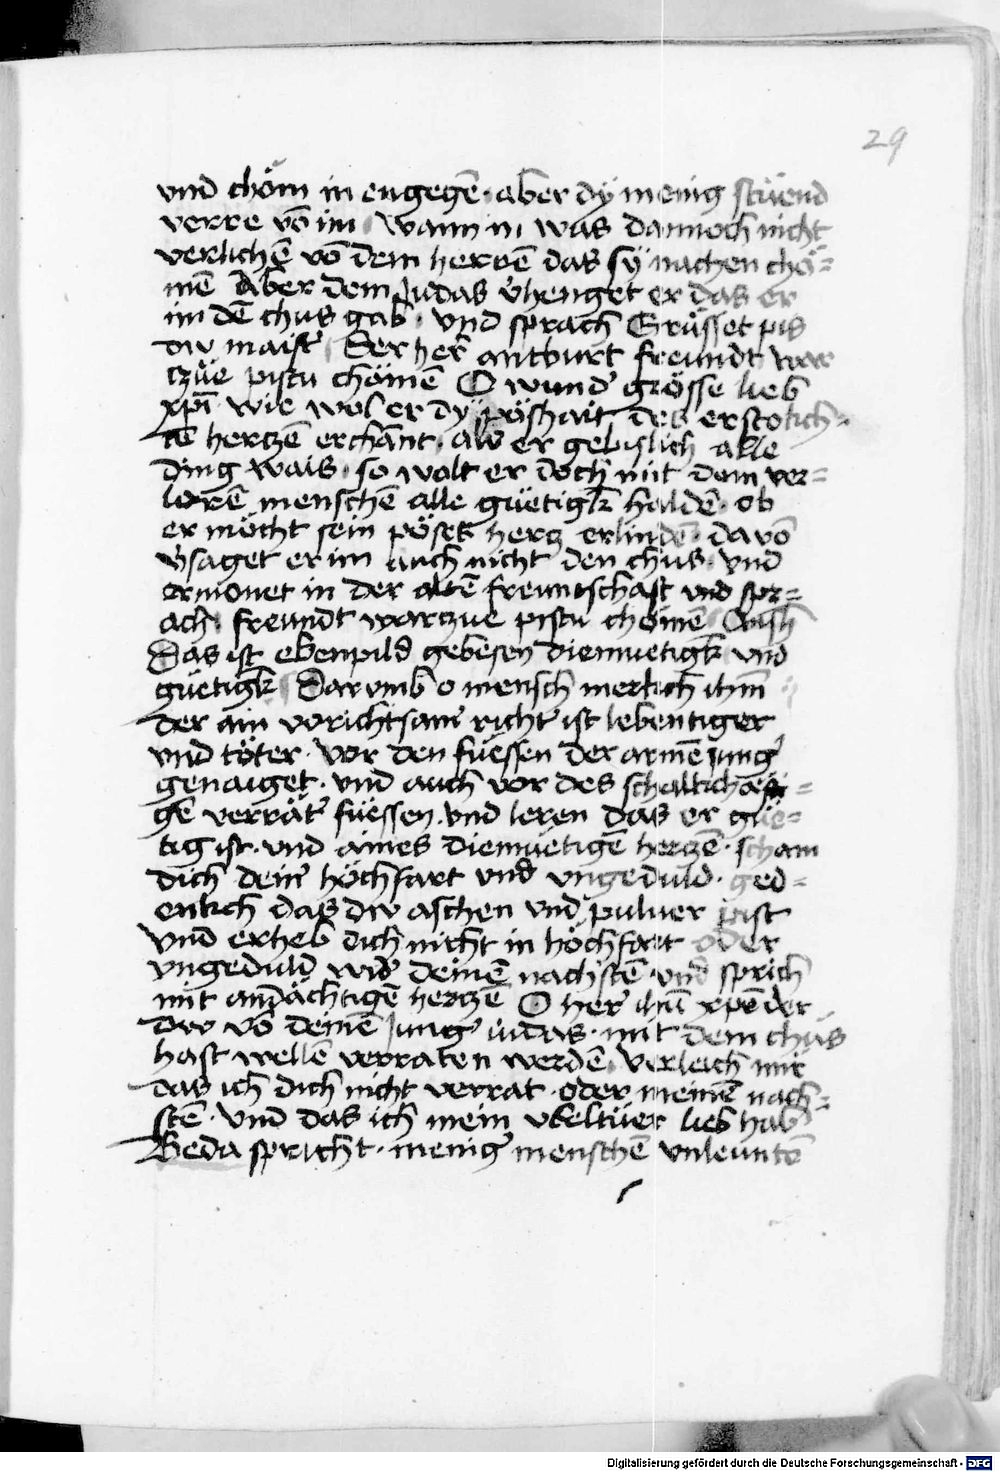 29
vnd chöm in engegē · aber dÿ menig stüend
verre vō im wann in was dannoch nicht
verlichē vō dem herrē das sÿ nachen chö=
mē Aber dem Judas v̓henget er das er
im dē chus gab · vnd sprach Grüsset pis
dw maist̓ Der her̓ antburt freundt war
czüe pistu chömē O wund̓ grösse lieb
xpī wie wol er dÿ pöshait des erstokch=
tē herczē erchant · als er gebislich alle
ding wais · so wolt er doch mit dem ver=
lorē menschē alle güetigk̓ haldē · ob
er möcht sein pöses hercz erlindē · davō
v̓saget er im auch nicht den chus · vnd
ermonet in der altē freuntschaft vnd spr=
ach · freundt warczue pistu chömē
Das ist ebenpild gebesen diemuetigk̓ vnd
güetigk̓ Darvmb o mensch merkch
der ain vorichtsam̓ richt̓ ist lebentiger
vnd töter · vor den füessen der armē Jung̓
genaiget · vnd auch vor des
gē verrät̓ füessen · vnd leren das er güe=
tig ist · vnd aines diemüetigē herczē · scham
dich dein̓ höchfart vnd vngeduld · ged=
enkch das dw aschen vnd puluer pist
vnd erheb dich nicht in höchfart oder
vngeduld wid̓ deinē nachstē · vnd sprich
mit andächtigē herczē O her̓ ihū xpē der
dw vō deinē Jung̓ iudas · mit dem chus
hast wellē verraten werdē verleich mir
das ich dich nicht verrat · oder meinē nach=
stē · vnd das ich mein vbeltüer lieb hab
Beda spricht · menig̓ menschē vnleuntē
Digitalisierung gefördert durch die Deutsche Forschungsgemeinschaft - DFG